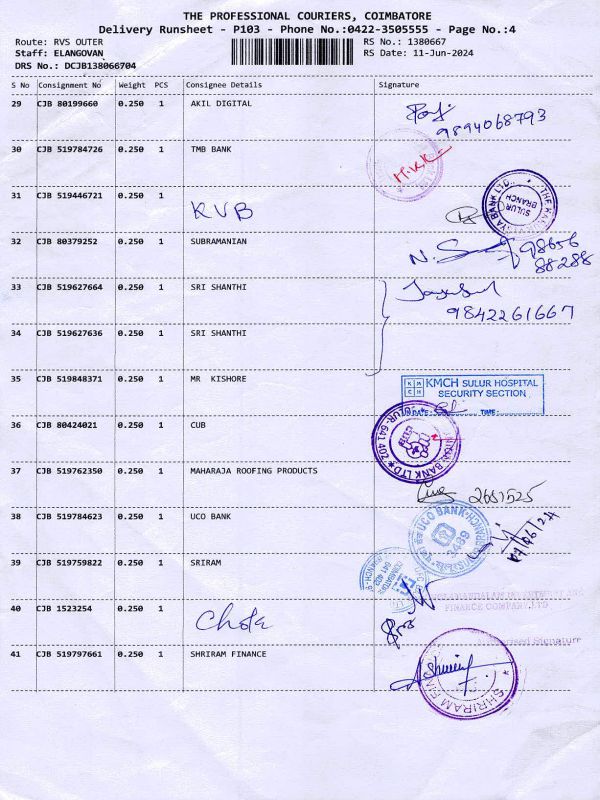 THE PROFESSIONAL COURIERS, COIMBATORE
Delivery Runsheet - P103 - Phone No.:0422-3505555 - Page No.:4
Route: RVS OUTER RS No.: 1380667
Staff: ELANGOVAN RS Date: 11-Jun-2024
DRS No.: DCJB138066704
S No Consignment No Weight PCS Consignee Details Signature
29 CJB 80199660 0.250 1 AKIL DIGITAL
9894068793
30 CJB 519784726 0.250 1 TMB BANK
H.K.K
31 CJB 519446721 0.250 1 KVB
SULUR BRANCH
32 CJB 80379252 0.250 1 SUBRAMANIAN
98656
88288
33 CJB 519627664 0.250 1 SRI SHANTHI
9842261667
34 CJB 519627636 0.250 1 SRI SHANTHI
35 CJB 519848371 0.250 1 MR KISHORE
KMCH KMCH SULUR HOSPITAL
SECURITY SECTION
DATE: TIME:
36 CJB 80424021 0.250 1 CUB
SULUR-641 402 BANK LTD
37 CJB 519762350 0.250 1 MAHARAJA ROOFING PRODUCTS
2681525
38 CJB 519784623 0.250 1 UCO BANK
UCO BANK 3489
39 CJB 519759822 0.250 1 SRIRAM
COIMBATORE 641 402
FINANCE COMPANY LTD
40 CJB 1523254 0.250 1 Chola
Authorised Signature
41 CJB 519797661 0.250 1 SHRIRAM FINANCE
SHRIRAM